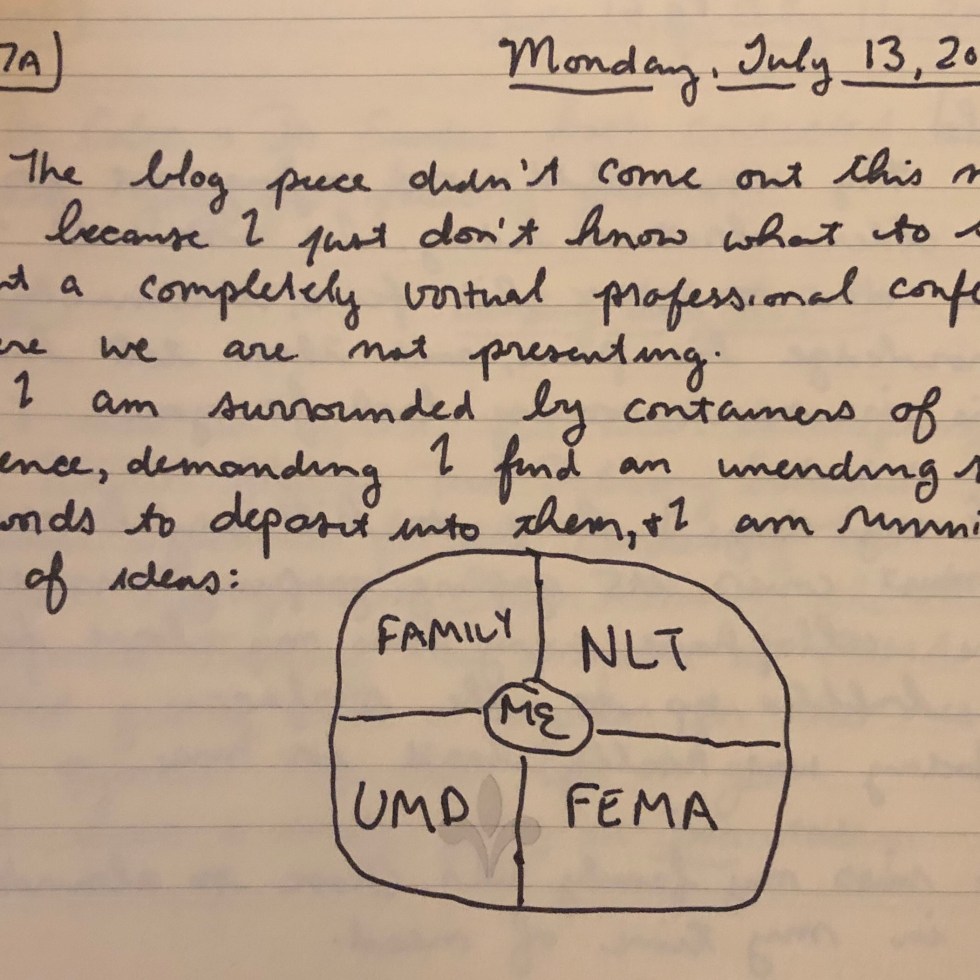 7A)
Monday, July 13, 20
The blog piece didn't come out this
because I just don't know what to
a completely virtual professional confe
ere we are not presenting.
I am surrounded by containers of
ence, demanding I find an unending
words to deposit into them, + I am runni
of ideas:
FAMILY NLT
ME
UMD FEMA